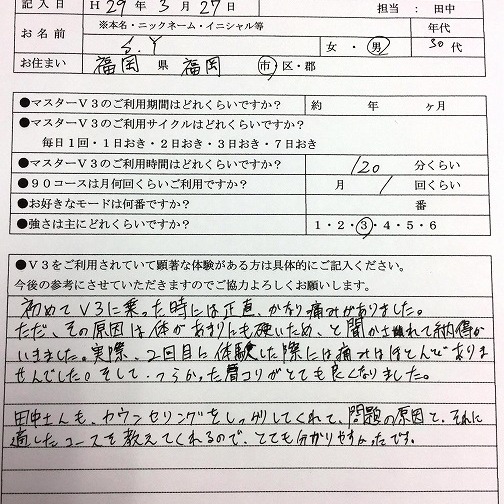 記入日 H 29年 3月 27日 担当 : 田中
お名前 ※本名・ニックネーム・イニシャル等 年代
S.Y 女・男 30代
お住まい 福岡 県 福岡 市 区・郡
●マスターV3のご利用期間はどれくらいですか? 約 年 ヶ月
●マスターV3のご利用サイクルはどれくらいですか?
毎日1回・1日おき・2日おき・3日おき・7日おき
●マスターV3のご利用時間はどれくらいですか? 120 分くらい
●90コースは月何回くらいご利用ですか? 月 1 回くらい
●お好きなモードは何番ですか? 番
●強さは主にどれくらいですか? 1・2・3・4・5・6
●V3をご利用されていて顕著な体験がある方は具体的にご記入ください。
今後の参考にさせていただきますのでご協力よろしくお願いします。
初めてV3に乗った時には正直、かなり痛みがありました。
ただ、その原因は体があまりにも硬いため、と聞かされて納得が
いきました。実際、2回目に体験した際には痛みはほとんどありま
せんでした。そして、つらかった肩コリがとても良くなりました。
田中さんも、カウンセリングをしっかりしてくれて、問題の原因と、それに
適したコースを教えてくれるので、とても分かりやすかったです。